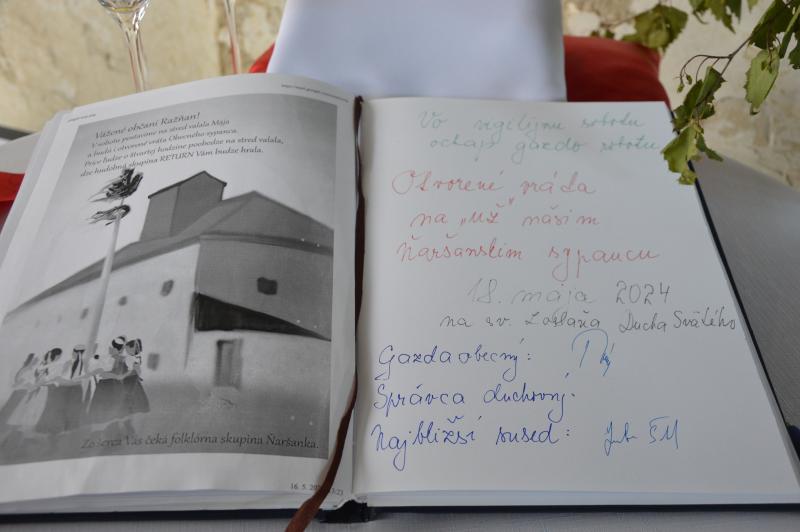 Vážené občani Ražňan!
V sobotu postavime na stred valala Maja
a budu i otvorené vrata Obecneho sypanca.
Pricе ľudze o štvartej hodzine poobedze na stred valala,
dze hudobna skupina RETURN Vam budze hrala.
Zo šerca Vas čeká folklórna skupina Ňaršanka.
16. 5.
Vo vigilijnu sobotu
gazdo robotu
Otvorené vráda
na „UŽ" nášim
Ňaršanskim sypancu
18. mája 2024
na sv. Zoslaňa Ducha Svätého
Gazda obecný:
Správca duchovný:
Najbližší sused: